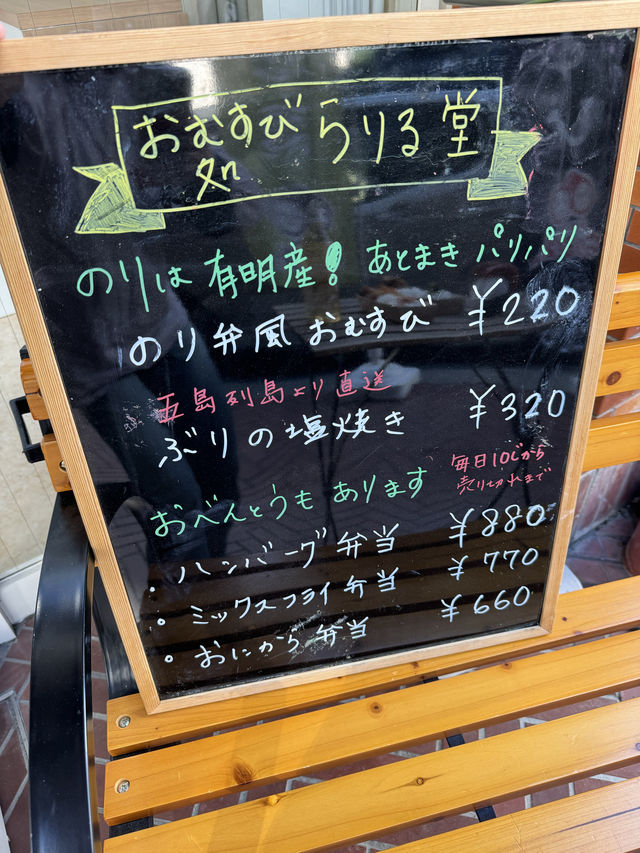 おむすび らりる堂
処
のりは 有明産! あとまき パリパリ
のり弁風 おむすび ¥220
五島列島より直送
ぶりの塩焼き ¥320
おべんとうも あります
毎日10じから
売り切れまで
・ハンバーグ弁当 ¥880
・ミックスフライ弁当 ¥770
・おにから弁当 ¥660